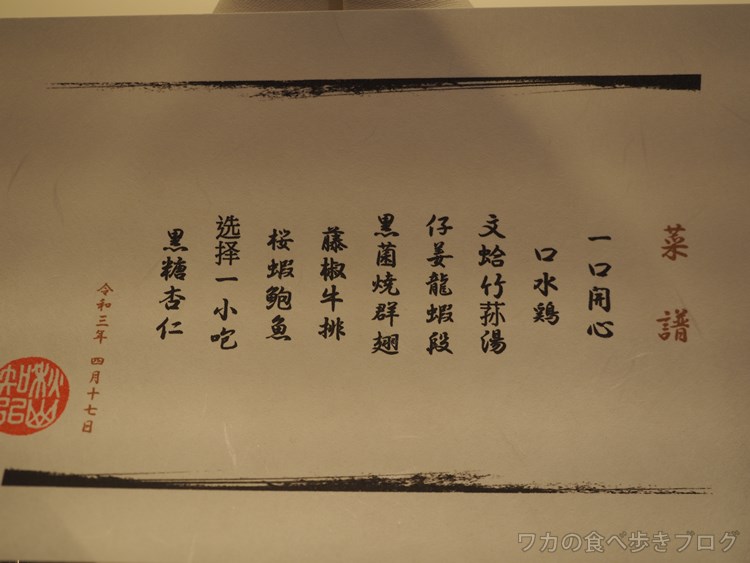 菜譜
一口開心
口水鶏
文蛤竹荪湯
仔姜龍蝦段
黒菌焼群翅
藤椒牛排
桜蝦鮑魚
选择一小吃
黒糖杏仁
令和三年 四月十七日
ワカの食べ歩きブログ